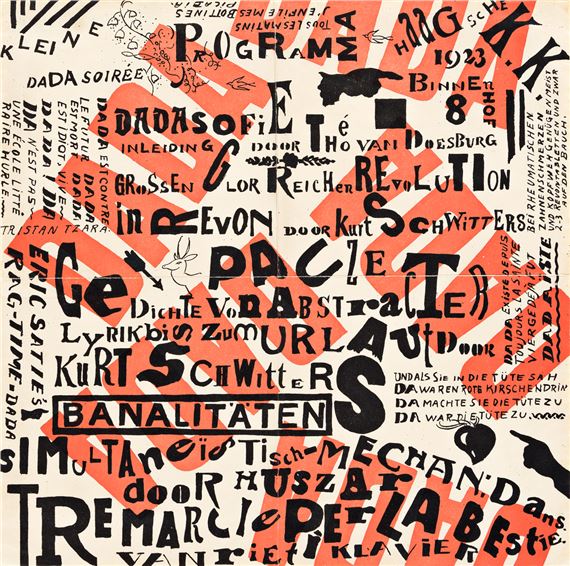 KLEINE
DADA SOIRÉE
TOUS LES MATINS
J'ENFILE MES BOTTINES
PICABIA
PROGRAMMA
HAAGSCHE K.K.
1923
BINNENHOF 8
DADASOFIE
INLEIDING DOOR THÉO VAN DOESBURG
GROSSEN GLORREICHEN REVOLUTION
in REVON DOOR Kurt SCHWITTERS
PAUZE
GeDICHTE VON ABSTracTER
LyRIK bis ZUM URLAUT DOOR
KURT SCHWITTERS
BANALITÄTEN
SIMULTANeistisch-MECHAN: Dans.
dooR HUSZAR
TREMARCIE PER LA BEStie.
VAN rieti KLAVIER
DADA EST CONTRE
LE FUTUR. DADA
EST MORT. DADA
EST IDIOT. VIVE
DADA! DADA
N'EST PAS
UNE ÉCOLE LITTÉ
RAIRE HURLE.
TRISTAN TZARA
ERIC SATIE'S
RAG-TIME-DADA
BEI RHEUMATISCHEN
ZAHNENSCHMERZEN
UND KOPF
GENÜGEN MEIST
2-3 REVONTABLETTEN UND ZWAR
AUF DEN BAUCH.
DADA EXISTE DEPUIS
TOUJOURS LA SAINTE
VIERGE DÉJÀ FUT
DADAÏSTE
UND ALS SIE IN DIE TÜTE SAH
DA WAREN ROTE KIRSCHEN DRIN
DA MACHTE SIE DIE TÜTE ZU
DA WAR DIE TÜTE ZU.
DADA
DADA
DADA